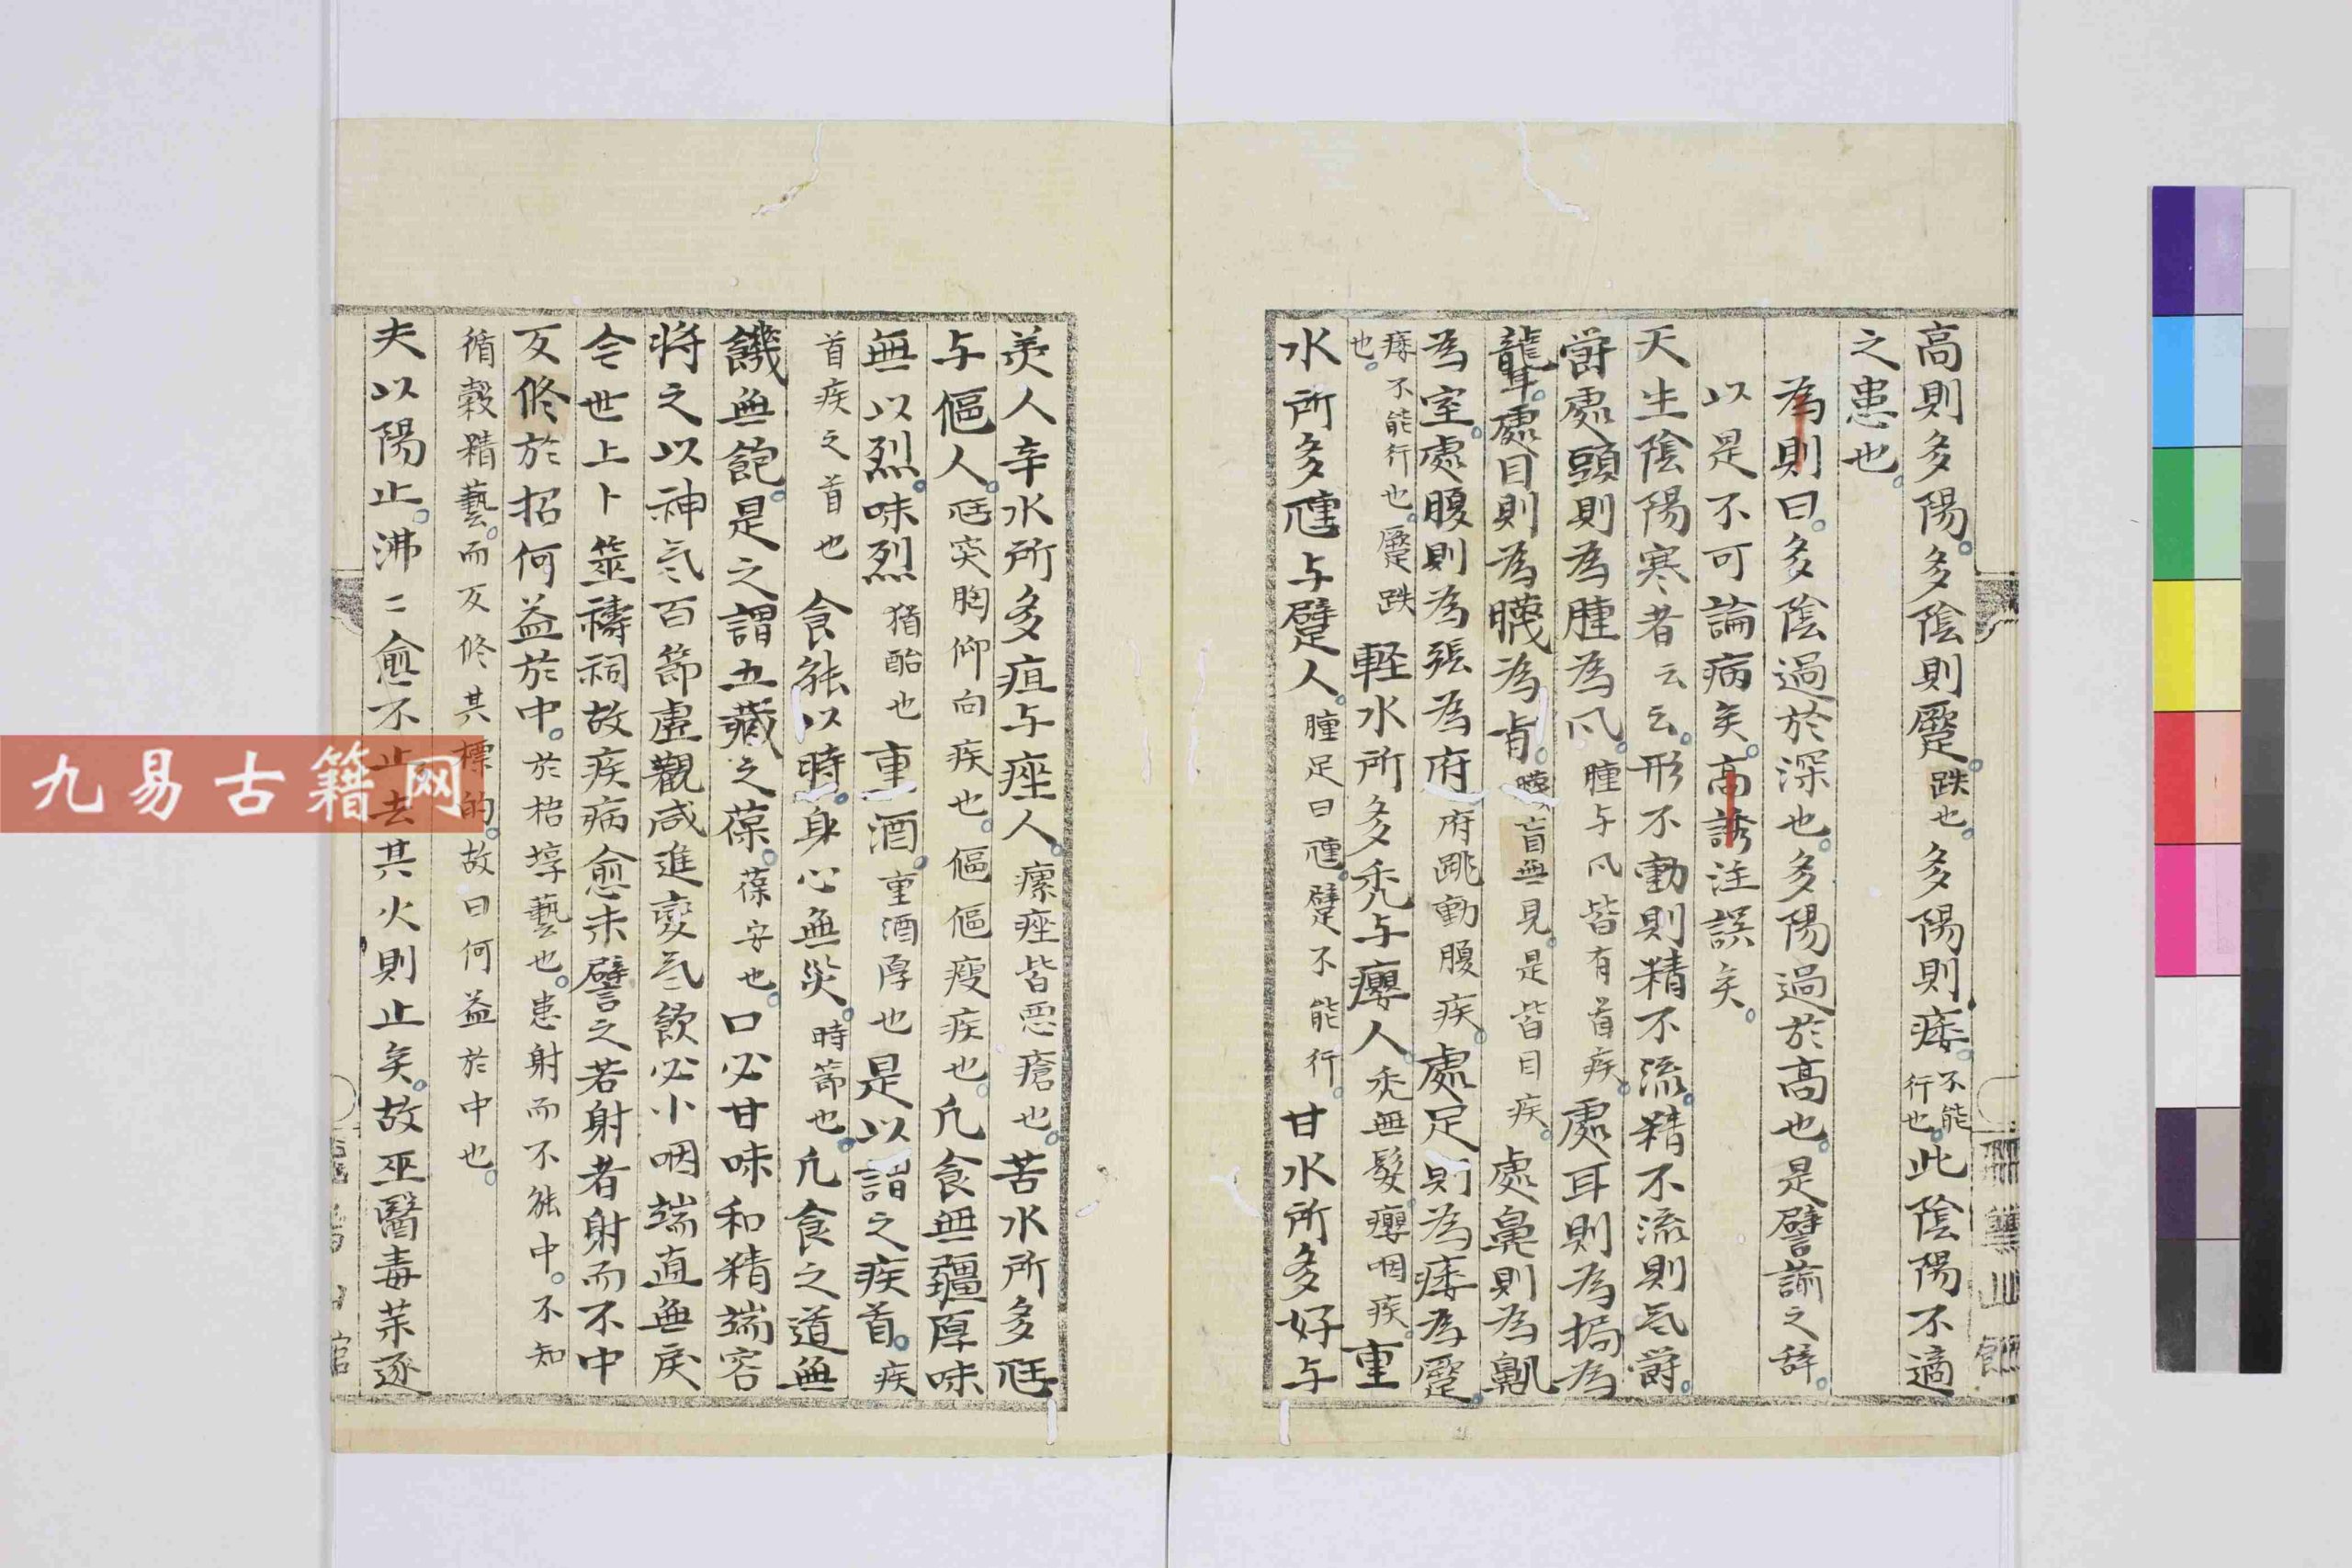 高則多陽。多陰則蹷。跌也。多陽則痿。不能行也。此陰陽不適
之患也。
為則曰。多陰過於深也。多陽過於高也。是譬諭之辞。
以是不可論病矣。高誘注誤矣。
天生陰陽寒者云云。形不動則精不流。精不流則气欝。
欝處頭則為腫為風。腫与風皆有首疾。處耳則為挶為
聾。處目則為䁾為盲。䁾盲無見。是皆目疾。處鼻則為鼽
為窒。處腹則為張為府府跳動腹疾。處足則為痿為蹷。
痿不能行也。蹷跌也。軽水所多禿与癭人。禿無髮。癭咽疾。重
水所多尰与躄人。腫足曰尰。躄不能行。甘水所多好与
美人辛水所多疽与痤人。瘭痤皆悪瘡也。苦水所多尫
与傴人。尫突胸仰向疾也。傴傴瘦疾也。凡食無疆厚味
無以烈。味烈猶酷也重酒。重酒厚也是以謂之疾首。疾
首疾之首也食能以時。身心無災。時節也。凡食之道無
饑無飽。是之謂五藏之葆。葆安也。口必甘味和精端容
将之以神气百節虛觀咸進受气飲必小咽端直無戾
今世上卜筮禱祠故疾病愈未譬之若射者射而不中
反修於招何益於中。於招埻藝也。患射而不能中。不知
循彀精藝。而反修其標的。故曰何益於中也。
夫以陽止。沸二愈不止去其火則止矣。故巫醫毒茉逐
九易古籍网